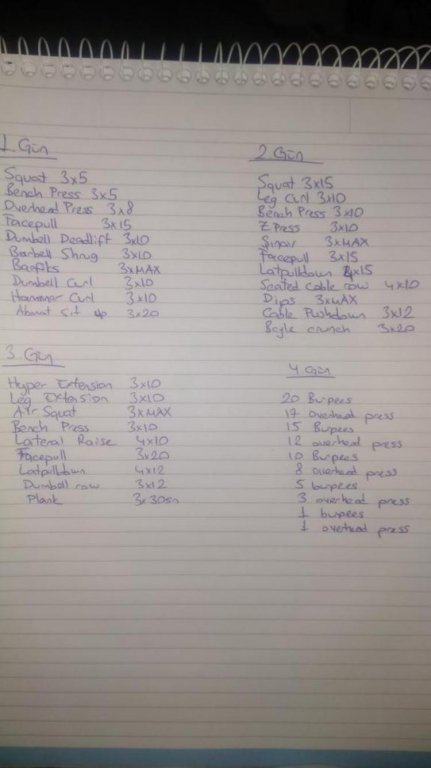 1. Gün
Squat 3x5
Bench Press 3x5
Overhead Press 3x8
Facepull 3x15
Dumbell Deadlift 3x10
Barbell Shrug 3x10
Barfiks 3xMAX
Dumbell Curl 3x10
Hammer Curl 3x10
Abmat Sit up 3x20
2 Gün
Squat 3x15
Leg Curl 3x10
Bench Press 3x10
Z Press 3x10
Şınav 3xMAX
Facepull 3x15
Latpulldown 4x15
Seated Cable row 4x10
Dips 3xMAX
Cable Pushdown 3x12
Bcyle crunch 3x20
3. Gün
Hyper Extension 3x10
Leg Extension 3x10
Ayr Squat 3xMAX
Bench Press 3x10
Lateral Raise 4x10
Facepull 3x20
Latpulldown 4x12
Dumbell row 3x12
Plank 3x30sn
4 Gün
20 Burpees
17 overhead press
15 Burpees
12 overhead press
10 Burpees
8 overhead press
5 burpees
3 overhead press
1 burpees
1 overhead press